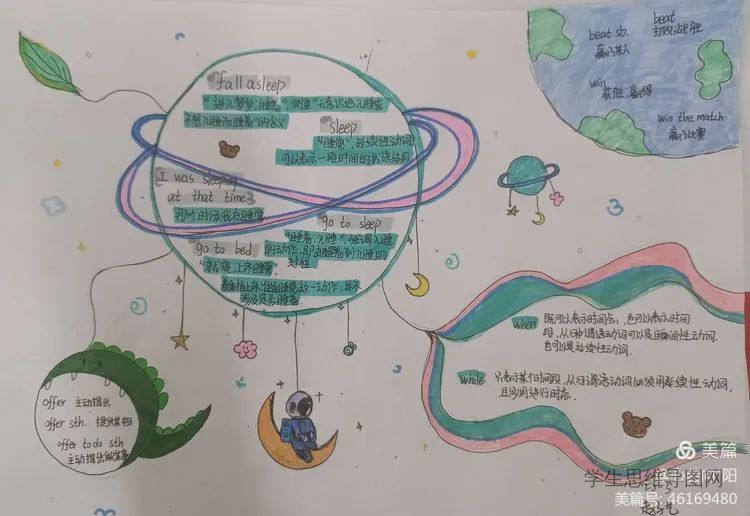 fall asleep
"进入梦乡,睡着",
不想入睡而睡着"的含义
sleep
"睡觉",延续性动词
可以表示一段时间的
I was sleeping
at that time
那个时候我在睡觉
go to sleep
"睡着,入睡",强调入睡
的动作,
过程
go to bed
"去睡觉,上床睡觉",
着重指上床准备睡觉这一动作,并不
涉及是否睡着
beat sb.
赢了某人
beat
打败;战胜
win
获胜;赢得
win the match
赢了比赛
when 既可以表示时间点,也可以表示时间
段,从句谓语动词可以是瞬间性动词,
也可以是延续性动词.
while 只表示某个时间段,从句谓语动词必须用延续性动词,
且多用进行时态.
offer 主动提出
offer sth. 提供某物
offer to do sth
主动提出做某事
美篇
阳
学生思维导图网
美篇号: 46169480